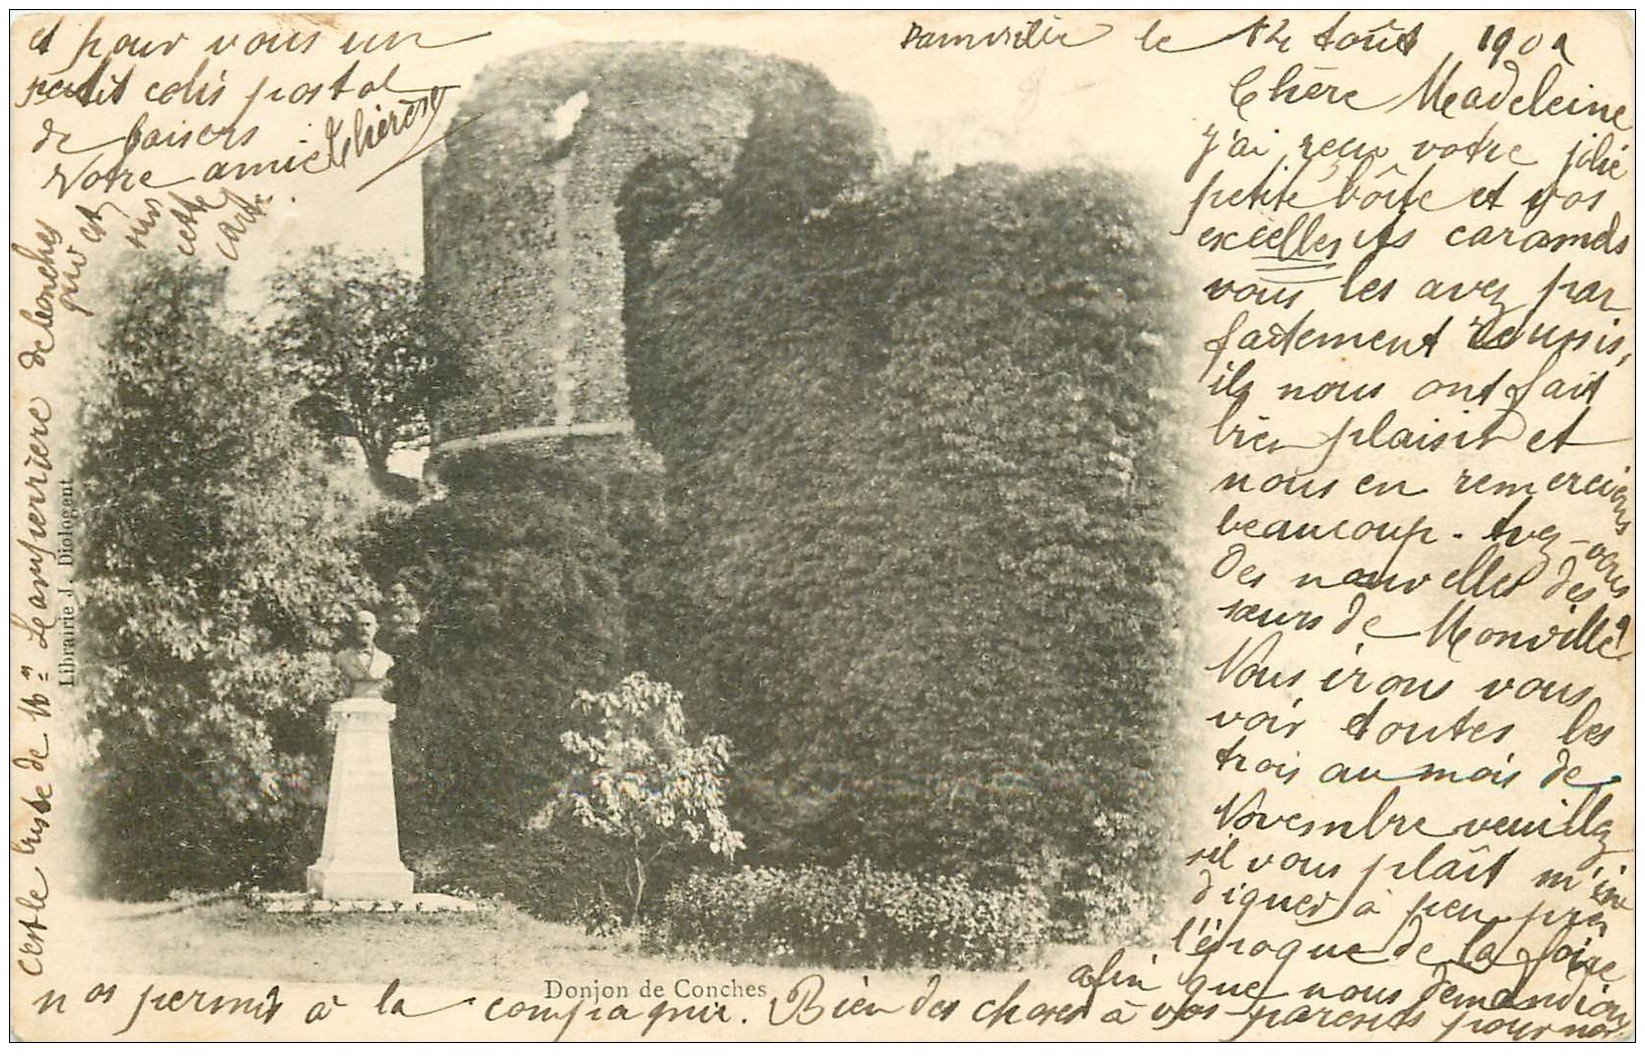 Damville le 12 Août 1902
Chère Madeleine
J'ai reçu votre jolie
petite boîte et vos
excellents caramels
vous les avez par
faitement réussis,
ils nous ont fait
bien plaisir et
nous en remercions
beaucoup. Avez-vous
des nouvelles des
sœurs de Monville?
Nous irons vous
voir toutes les
trois au mois de
Novembre veuillez
s'il vous plaît m'in
diquer à peu près
l'époque de la foire
afin que nous demandions
nos permis à la compagnie. Bien des choses à vos parents pour nous
et pour vous un
petit colis postal
de baisers
Votre amie Thérèse
c'est le buste de Mr Lampérière de Conches
qui est
sur
cette
carte
Librairie J. Diologent
Donjon de Conches